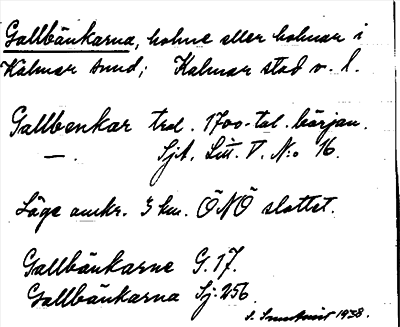 Gallbänkarna, holme eller holmar i
Kalmar sund; Kalmar stad o. l.
Gallbenkar trol. 1700-tal. början.
—. Sjk. Litt. V. N:o 16.
Läge omkr. 3 km. ÖNÖ slottet.
Gallbänkarne G. 17.
Gallbänkarna Sj: 256.
1938.